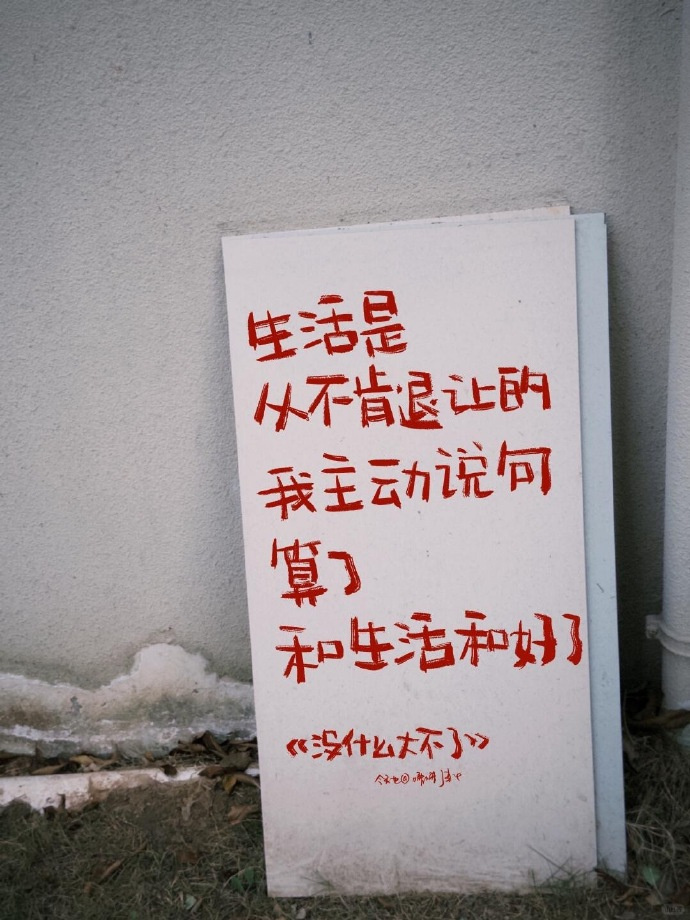 生活是
从不肯退让的
我主动说句
算了
和生活和好了
《没什么大不了》